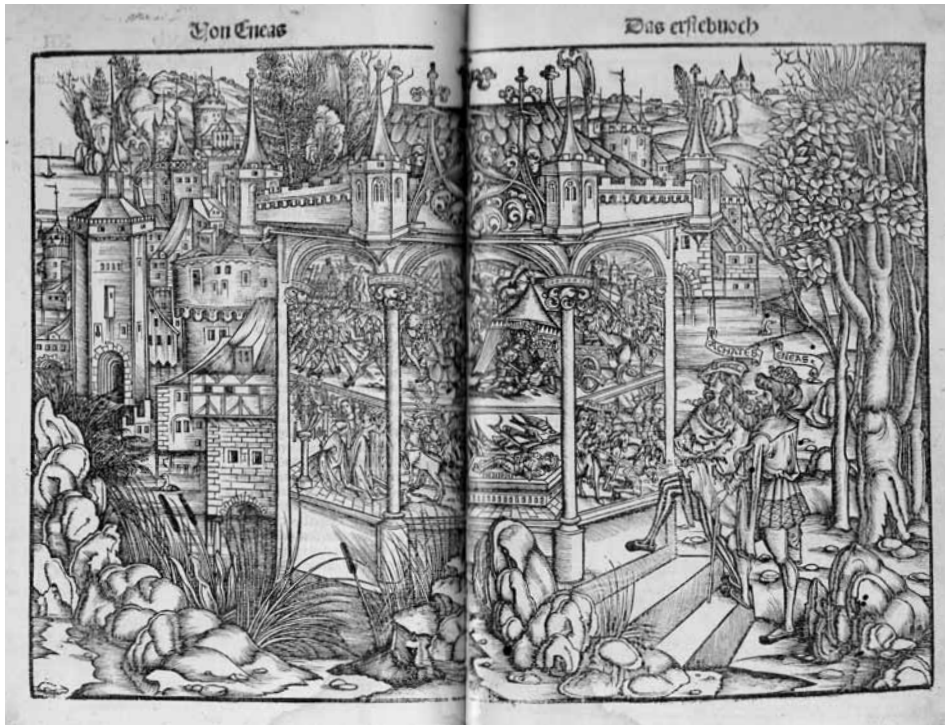 Von Eneas
Das erstebuoch
ACHATES
ENEAS